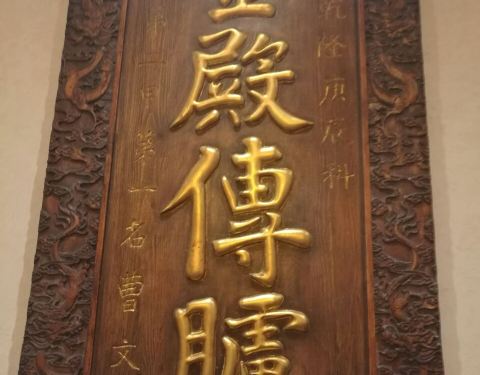 乾隆庚辰科
金殿傳臚
第二甲第一名曹文